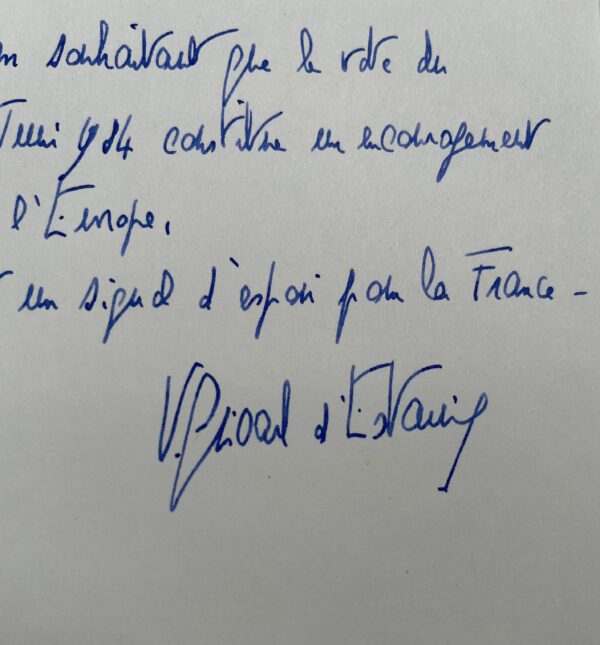 n souhaitant que le vote du
Juin 1984 constitue un encouragement
l'Europe,
t un signal d'espoir pour la France -
V. Giscard d'Estaing